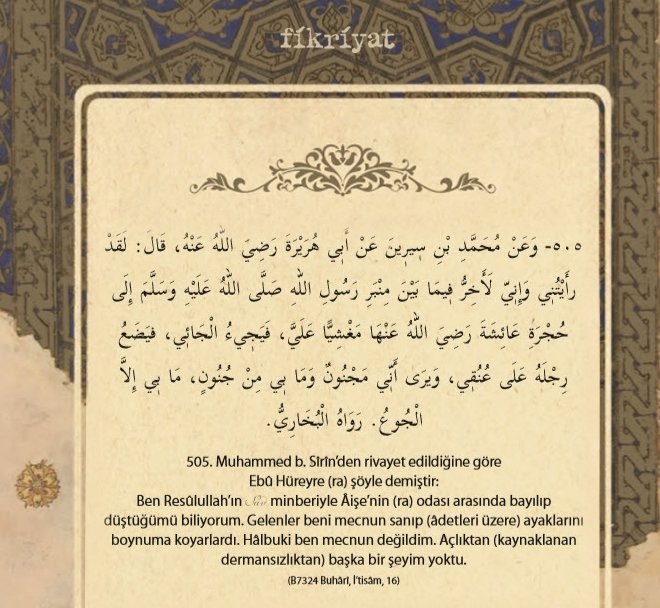 fikriyat
٥٠٥- وَعَنْ مُحَمَّدِ بْنِ سِيرِينَ عَنْ أَبِي هُرَيْرَةَ رَضِيَ اللهُ عَنْهُ، قَالَ: لَقَدْ
رَأَيْتُنِي وَإِنِّي لَأَخِرُّ فِيمَا بَيْنَ مِنْبَرِ رَسُولِ اللهِ صَلَّى اللهُ عَلَيْهِ وَسَلَّمَ إِلَى
حُجْرَةِ عَائِشَةَ رَضِيَ اللهُ عَنْهَا مَغْشِيًّا عَلَيَّ، فَيَجِيءُ الْجَائِي، فَيَضَعُ
رِجْلَهُ عَلَى عُنُقِي، وَيَرَى أَنِّي مَجْنُونٌ وَمَا بِي مِنْ جُنُونٍ، مَا بِي إِلاَّ
الْجُوعُ. رَوَاهُ الْبُخَارِيُّ.
505. Muhammed b. Sîrîn’den rivayet edildiğine göre
Ebû Hüreyre (ra) şöyle demiştir:
Ben Resûlullah’ın Sav minberiyle Âişe’nin (ra) odası arasında bayılıp
düştüğümü biliyorum. Gelenler beni mecnun sanıp (âdetleri üzere) ayaklarını
boynuma koyarlardı. Hâlbuki ben mecnun değildim. Açlıktan (kaynaklanan
dermansızlıktan) başka bir şeyim yoktu.
(B7324 Buhârî, İ’tisâm, 16)